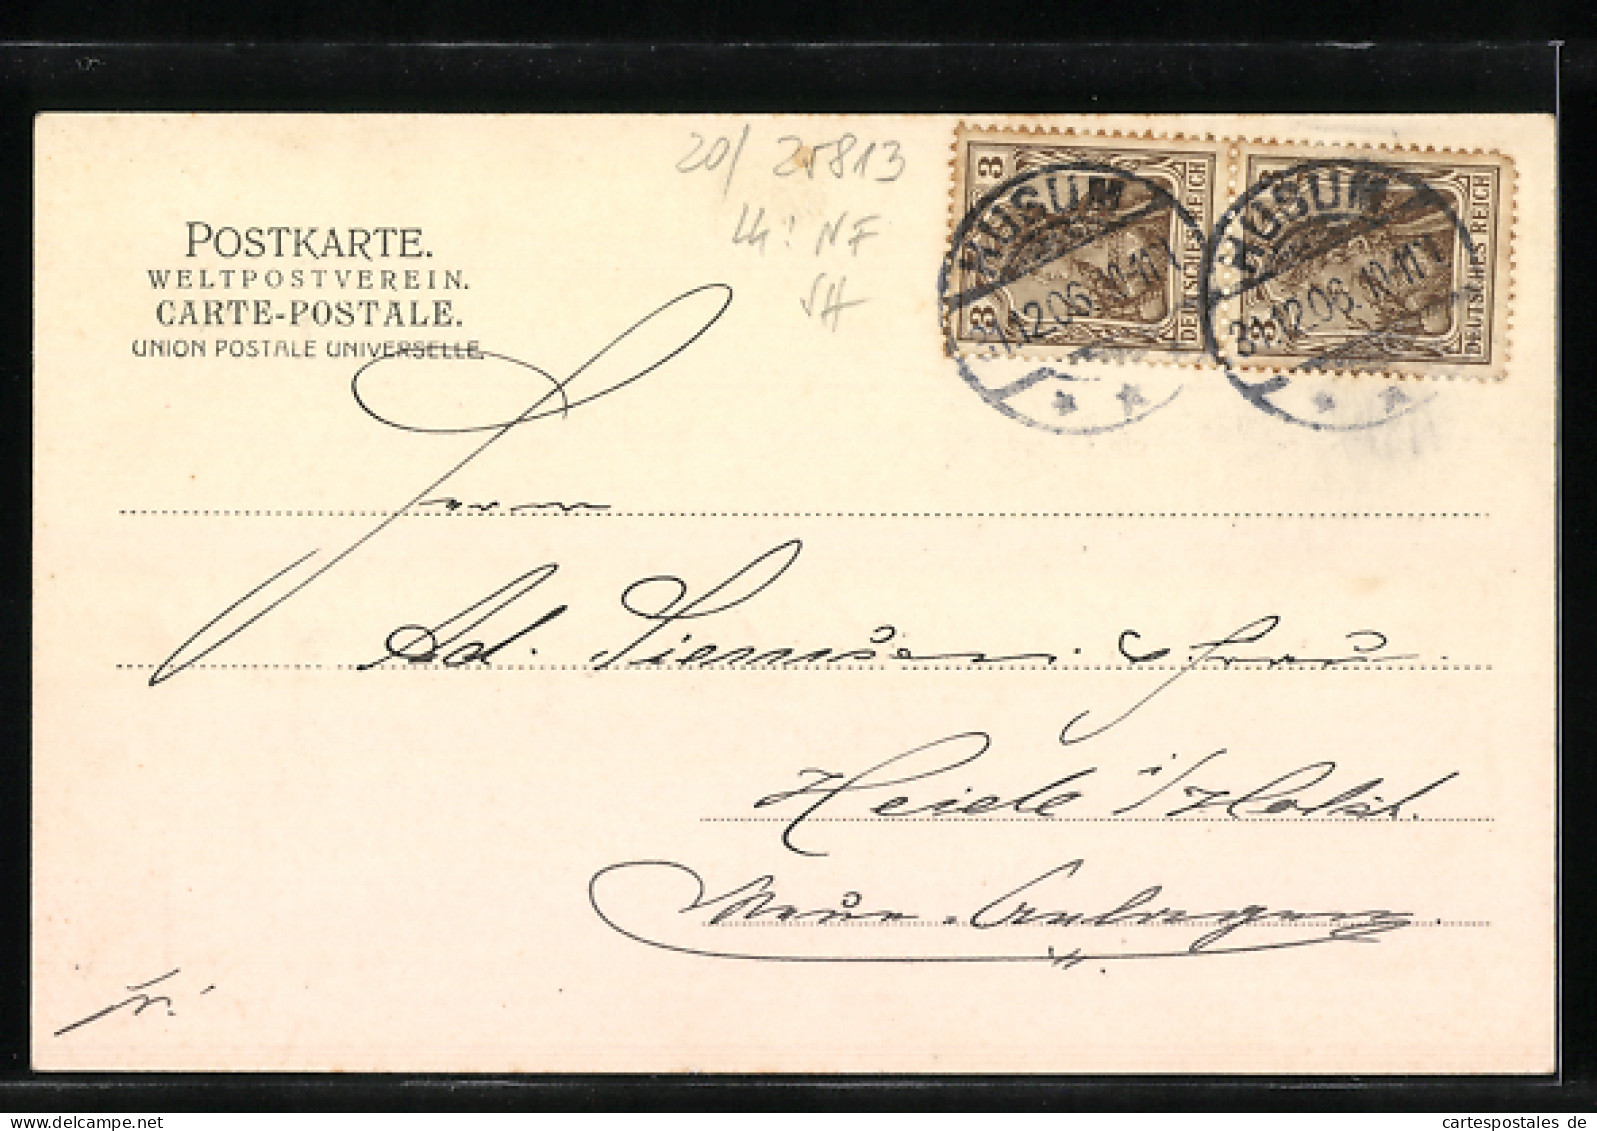 20/ 25813
NF
SH
POSTKARTE.
WELTPOSTVEREIN.
CARTE-POSTALE.
UNION POSTALE UNIVERSELLE.
3 DEUTSCHES REICH 3
3 DEUTSCHES REICH 3
HUSUM
31.12.06. 10-11 V
HUSUM
31.12.06. 10-11 V
Herrn
Ad. Siemsen & Frau
Heide i/Holst.
Neue
fr.
cartespostales de